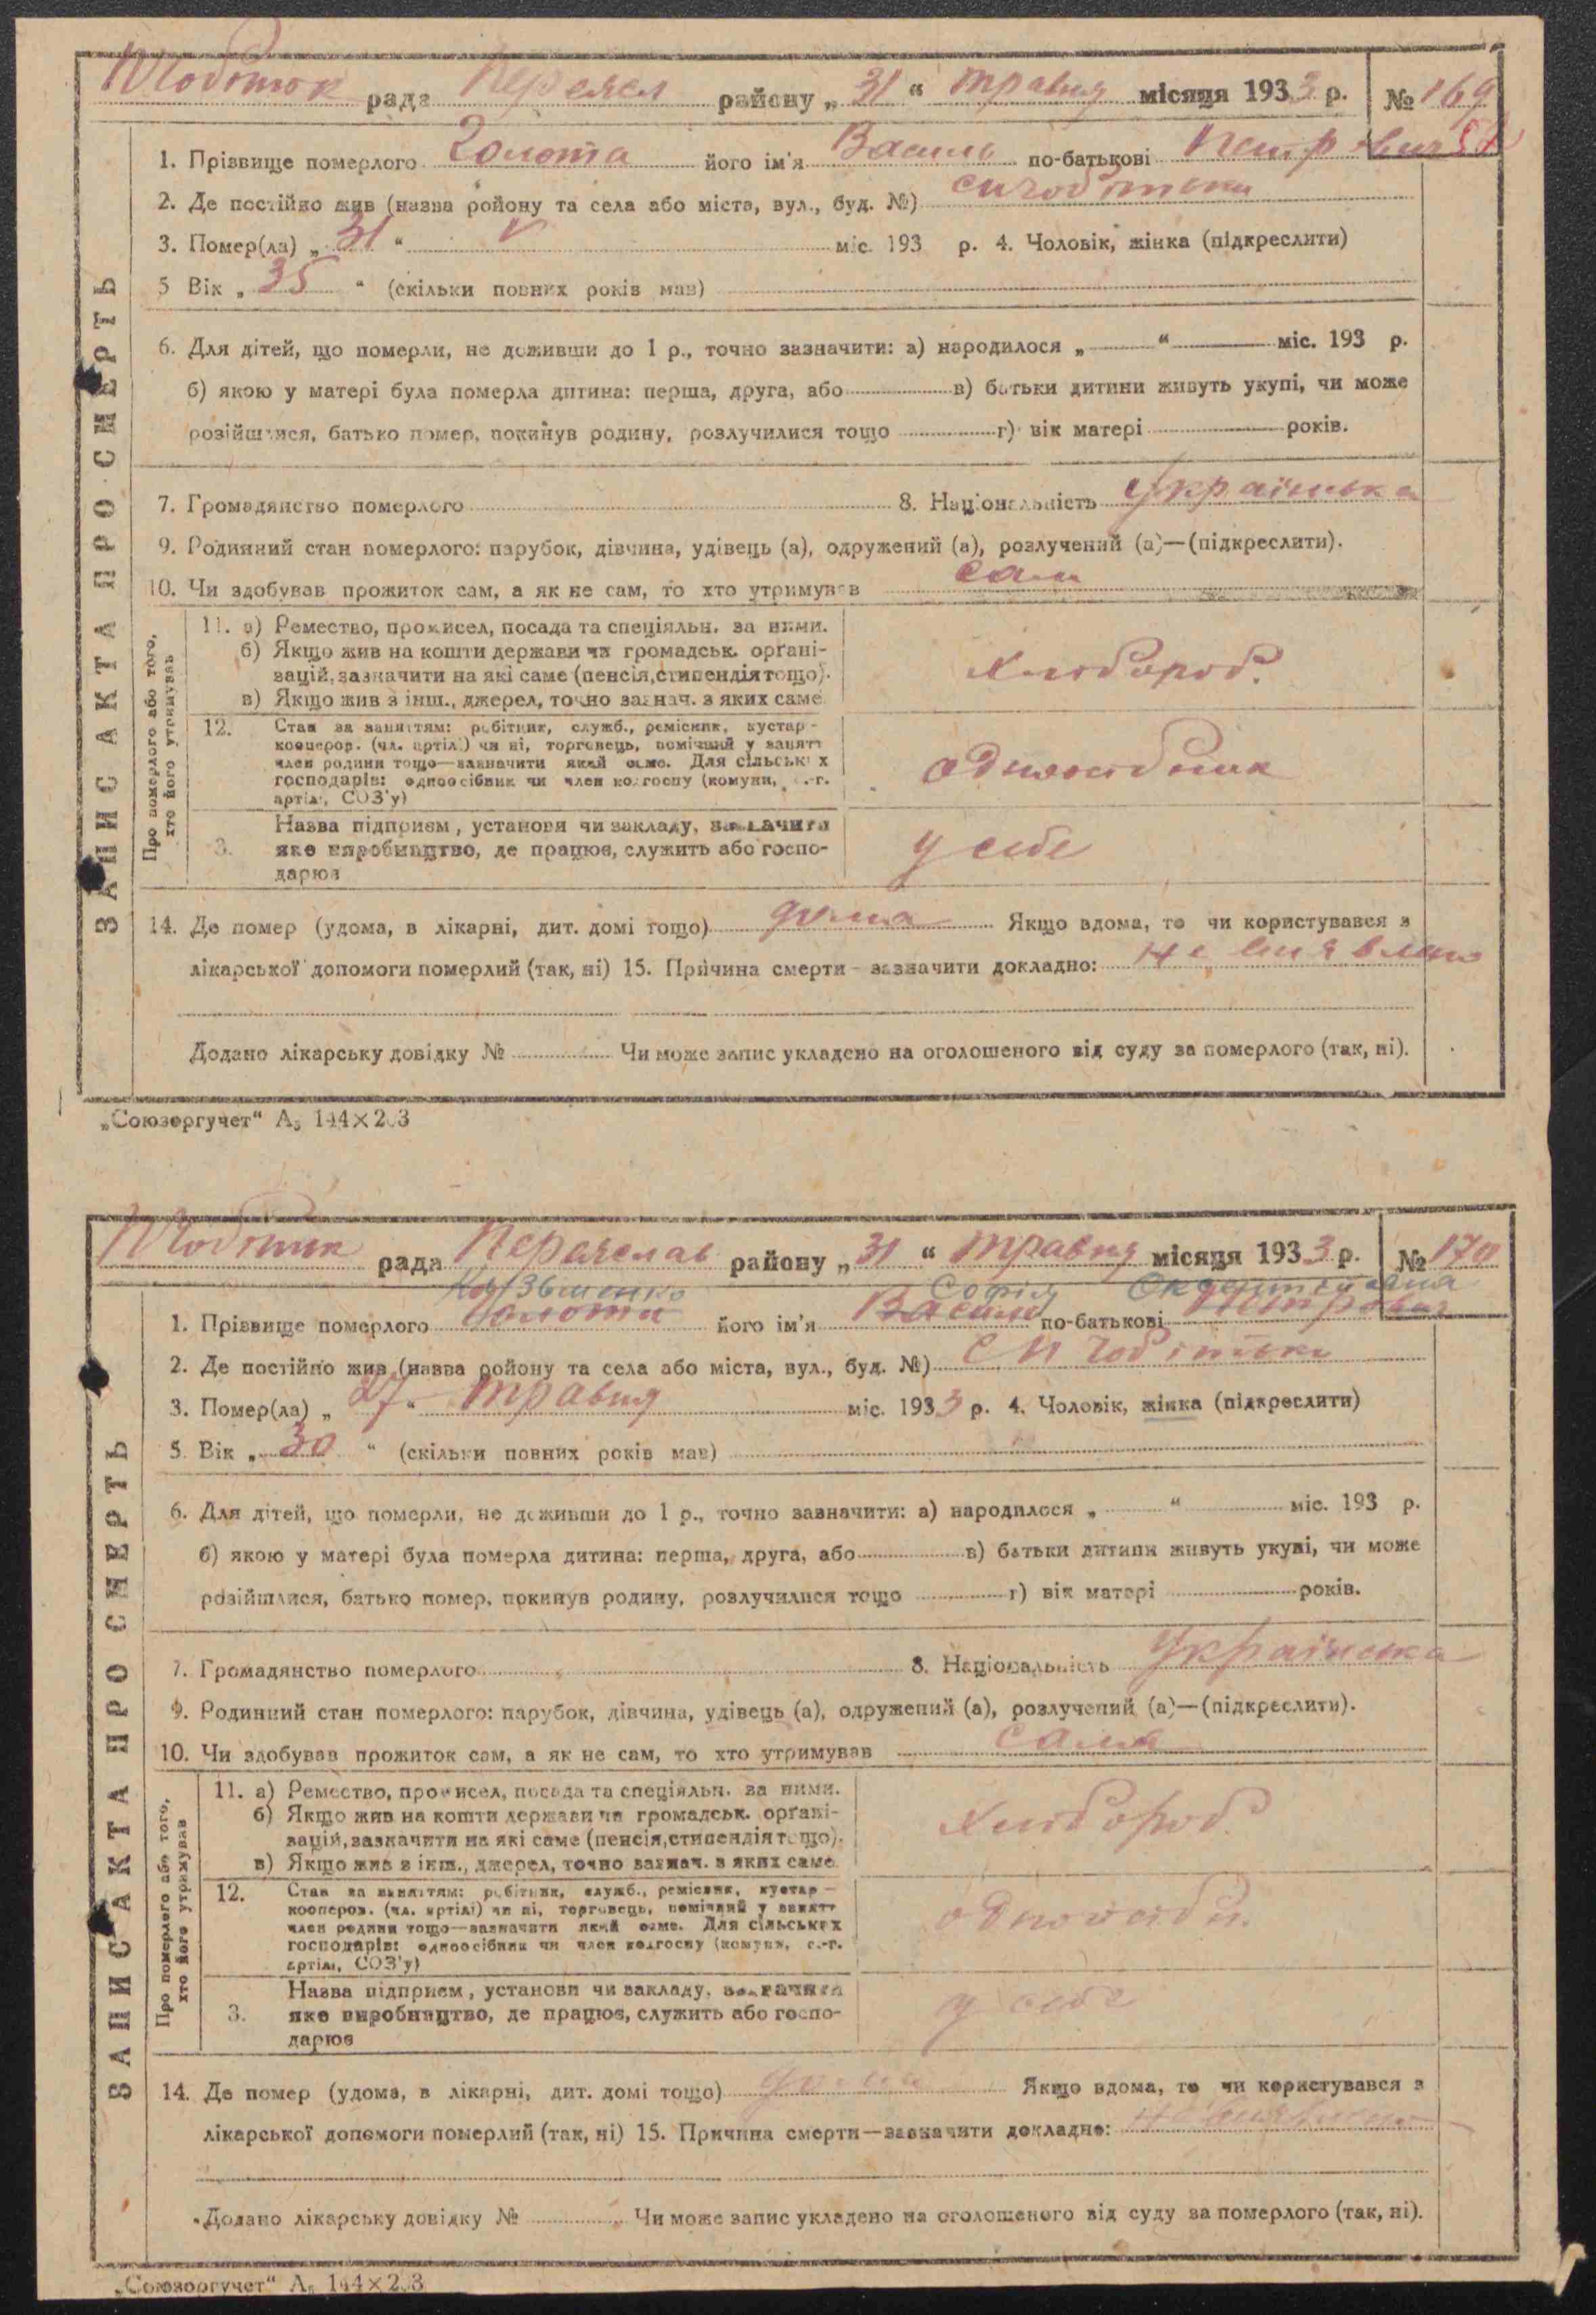 рада Переясл району „31“ травня місяця 1933 р. № 169
1. Прізвище померлого Золота його ім'я Василь по-батькові Петрович
2. Де постійно жив (назва ройону та села або міста, вул., буд. №)
3. Помер(ла) „31“ V міс. 193 р. 4. Чоловік, жінка (підкреслити)
5 Вік „35“ (скільки повних років мав)
6. Для дітей, що померли, не доживши до 1 р., точно зазначити: а) народилося „ “ міс. 193 р.
б) якою у матері була померла дитина: перша, друга, або в) батьки дитини живуть укупі, чи може
розійшлися, батько помер, покинув родину, розлучилися тощо г) вік матері років.
7. Громадянство померлого 8. Національність Українська
9. Родинний стан померлого: парубок, дівчина, удівець (а), одружений (а), розлучений (а)—(підкреслити).
10. Чи здобував прожиток сам, а як не сам, то хто утримував сам
ЗАПИС АКТА ПРО СМЕРТЬ
Про померлого або того,
хто його утримував
11. а) Ремество, промисел, посада та спеціяльн. за ними.
б) Якщо жив на кошти держави чи громадськ. орґані-
зацій, зазначити на які саме (пенсія, стипендія тощо).
в) Якщо жив з інш., джерел, точно зазнач. з яких саме
Хлібороб.
12. Стан за заняттям: робітник, служб., ремісник, кустар-
кооперов. (чл. артілі) чи ні, торговець, помічний у занятт
член родини тощо—зазначити який саме. Для сільських
господарів: одноосібник чи член колгоспу (комуни, с.-г.
артілі, СОЗ'у)
одноосібник
3. Назва підприєм, установи чи закладу, зазначити
яке виробництво, де працює, служить або госпо-
дарює
у себе
14. Де помер (удома, в лікарні, дит. домі тощо) дома Якщо вдома, то чи користувався з
лікарської допомоги померлий (так, ні) 15. Причина смерти - зазначити докладно: не виявлено
Додано лікарську довідку № Чи може запис укладено на оголошеного від суду за померлого (так, ні).
„Союзоргучет“ А₅ 144×203
рада Переяслав району „31“ травня місяця 1933 р. № 170
Кузьменко Софія
1. Прізвище померлого Золота його ім'я Василь по-батькові Петрович
2. Де постійно жив (назва ройону та села або міста, вул., буд. №)
3. Помер(ла) „27“ травня міс. 1933 р. 4. Чоловік, жінка (підкреслити)
5. Вік „30“ (скільки повних років мав)
6. Для дітей, що померли, не доживши до 1 р., точно зазначити: а) народилося „ “ міс. 193 р.
б) якою у матері була померла дитина: перша, друга, або в) батьки дитини живуть укупі, чи може
розійшлися, батько помер, покинув родину, розлучилися тощо г) вік матері років.
7. Громадянство померлого 8. Національність Українська
9. Родинний стан померлого: парубок, дівчина, удівець (а), одружений (а), розлучений (а)—(підкреслити).
10. Чи здобував прожиток сам, а як не сам, то хто утримував сама
ЗАПИС АКТА ПРО СМЕРТЬ
Про померлого або того,
хто його утримував
11. а) Ремество, промисел, посада та спеціяльн. за ними.
б) Якщо жив на кошти держави чи громадськ. орґані-
зацій, зазначити на які саме (пенсія, стипендія тощо).
в) Якщо жив з інш., джерел, точно зазнач. з яких саме
Хлібороб.
12. Стан за заняттям: робітник, служб., ремісник, кустар—
кооперов. (чл. артілі) чи ні, торговець, помічний у занятт
член родини тощо—зазначити який саме. Для сільських
господарів: одноосібник чи член колгоспу (комуни, с.-г.
артілі, СОЗ'у)
одноосіб.
3. Назва підприєм, установи чи закладу, зазначити
яке виробництво, де працює, служить або госпо-
дарює
у себе
14. Де помер (удома, в лікарні, дит. домі тощо) дома Якщо вдома, то чи користувався з
лікарської допомоги померлий (так, ні) 15. Причина смерти—зазначити докладно: не виявлено
Додано лікарську довідку № Чи може запис укладено на оголошеного від суду за померлого (так, ні).
„Союзоргучет“ А₅ 144×203